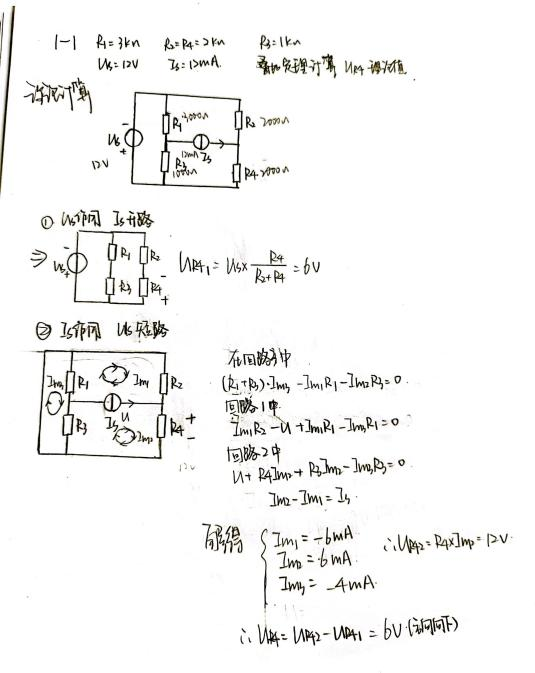 1-1 R₁=3kΩ R₂=R₄=2kΩ R₃=1kΩ
Us=12V Is=12mA. 叠加定理计算 UR4 理论值
计算
Us - + 12V R₁ 3000Ω R₂ 2000Ω
12mA Is
R₃ 1000Ω R₄ 2000Ω
① Us作用 Is开路
⇒ Us - + R₁ R₂ R₃ R₄ - +
UR41 = Us× R4/(R2+R4) = 6V
② Is作用 Us短路
Im3 R₁ Im1 R₂
Is U
R₃ Im2 R4 + -
12V
在回路3中
(R₁+R₃)·Im3 -Im1R₁ -Im2R₃=0.
回路1中
Im1R₂ -U +Im1R₁ -Im3R₁=0
回路2中
U+ R4Im2+ R3Im2-Im3R3=0
Im2-Im1= Is
解得 { Im1 = -6mA
Im2 = 6mA.
Im3 = -4mA.
∴UR42 = R4×Im2 = 12V.
∴ UR4 = UR42 - UR41 = 6V (方向向下)